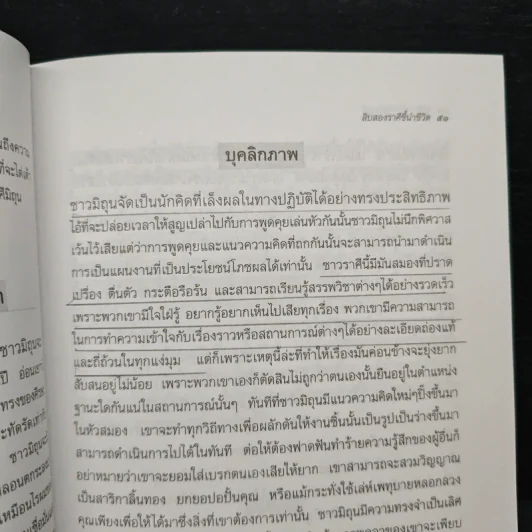 นถึงความ
ที่จะได้เล่
ศีมิถุน
ชาวมิถุนจะ
ปี อ่อนเยา
สิบสองราศีชี้นำชีวิต ๕๑
บุคลิกภาพ
ชาวมิถุนจัดเป็นนักคิดที่เล็งผลในทางปฏิบัติได้อย่างทรงประสิทธิภาพ
ไอ้ที่จะปล่อยเวลาให้สูญเปล่าไปกับการพูดคุยเล่นหัวกันนั้นชาวมิถุนไม่นึกพิศวาส
เว้นไว้เสียแต่ว่าการพูดคุยและแนวความคิดที่ถกกันนั้นจะสามารถนำมาดำเนิน
การเป็นแผนงานที่เป็นประโยชน์โภชผลได้เท่านั้น ชาวราศีนี้มีมันสมองที่ปราด
เปรื่อง ตื่นตัว กระตือรือร้น และสามารถเรียนรู้สรรพวิชาต่างๆได้อย่างรวดเร็ว
เพราะพวกเขามีใจใฝ่รู้ อยากรู้อยากเห็นไปเสียทุกเรื่อง พวกเขามีความสามารถ
ในการทำความเข้าใจกับเรื่องราวหรือสถานการณ์ต่างๆได้อย่างละเอียดถ่องแท้
และถี่ถ้วนในทุกแง่มุม แต่ก็เพราะเหตุนี้ล่ะที่ทำให้เรื่องมันค่อนข้างจะยุ่งยาก
สับสนอยู่ไม่น้อย เพราะพวกเขาเองก็ตัดสินไม่ถูกว่าตนเองนั้นยืนอยู่ในตำแหน่ง
ฐานะใดกันแน่ในสถานการณ์นั้นๆ ทันทีที่ชาวมิถุนมีแนวความคิดใหม่ๆปิ๊งขึ้นมา
ในหัวสมอง เขาจะทำทุกวิถีทางเพื่อผลักดันให้งานชิ้นนั้นเป็นรูปเป็นร่างขึ้นมา
สามารถดำเนินการไปได้ในทันที ต่อให้ต้องฟาดฟันทำร้ายความรู้สึกของผู้อื่นก็
อย่าหมายว่าเขาจะยอมใส่เบรกตนเองเสียให้ยาก เขาสามารถจะสวมวิญญาณ
เป็นสาริกาลิ้นทอง ยกยอปอปั้นคุณ หรือแม้กระทั่งใช้เล่ห์เพทุบายหลอกลวง
คุณเพียงเพื่อให้ได้มาซึ่งสิ่งที่เขาต้องการเท่านั้น ชาวมิถุนมีความทรงจำเป็นเลิศ